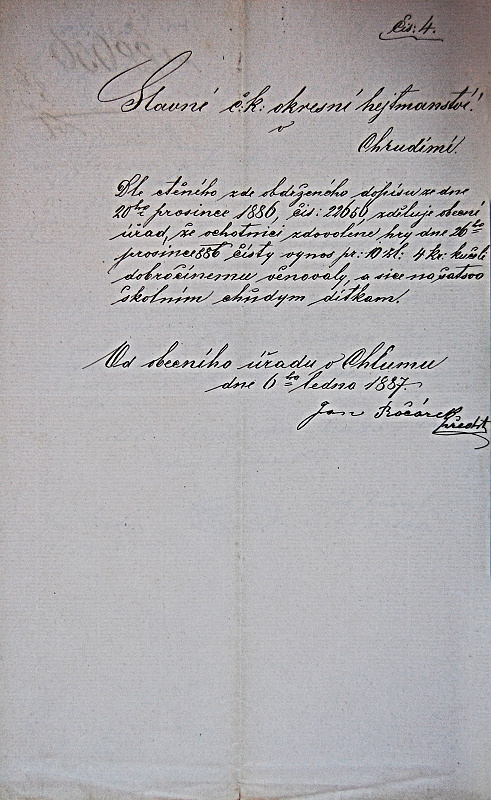 Čís: 4.
Slavné c.k: okresní hejtmanství!
v
Chrudimi.
Dle ctěného zde obdrženého dopisu ze dne
20ho prosince 1886, čis: 22656, zděluje obecní
úřad, že ochotníci zdovolené hry dne 26ho
prosince 886 čistý vynos pr: 10 zl: 4 kr: ku účeli
dobročinemu věnovaly, a sice na šatsvo
školním chudym ditkam.
Od obecního úřadu v Chlumu
dne 6ho ledna 1887.
Jan
předst